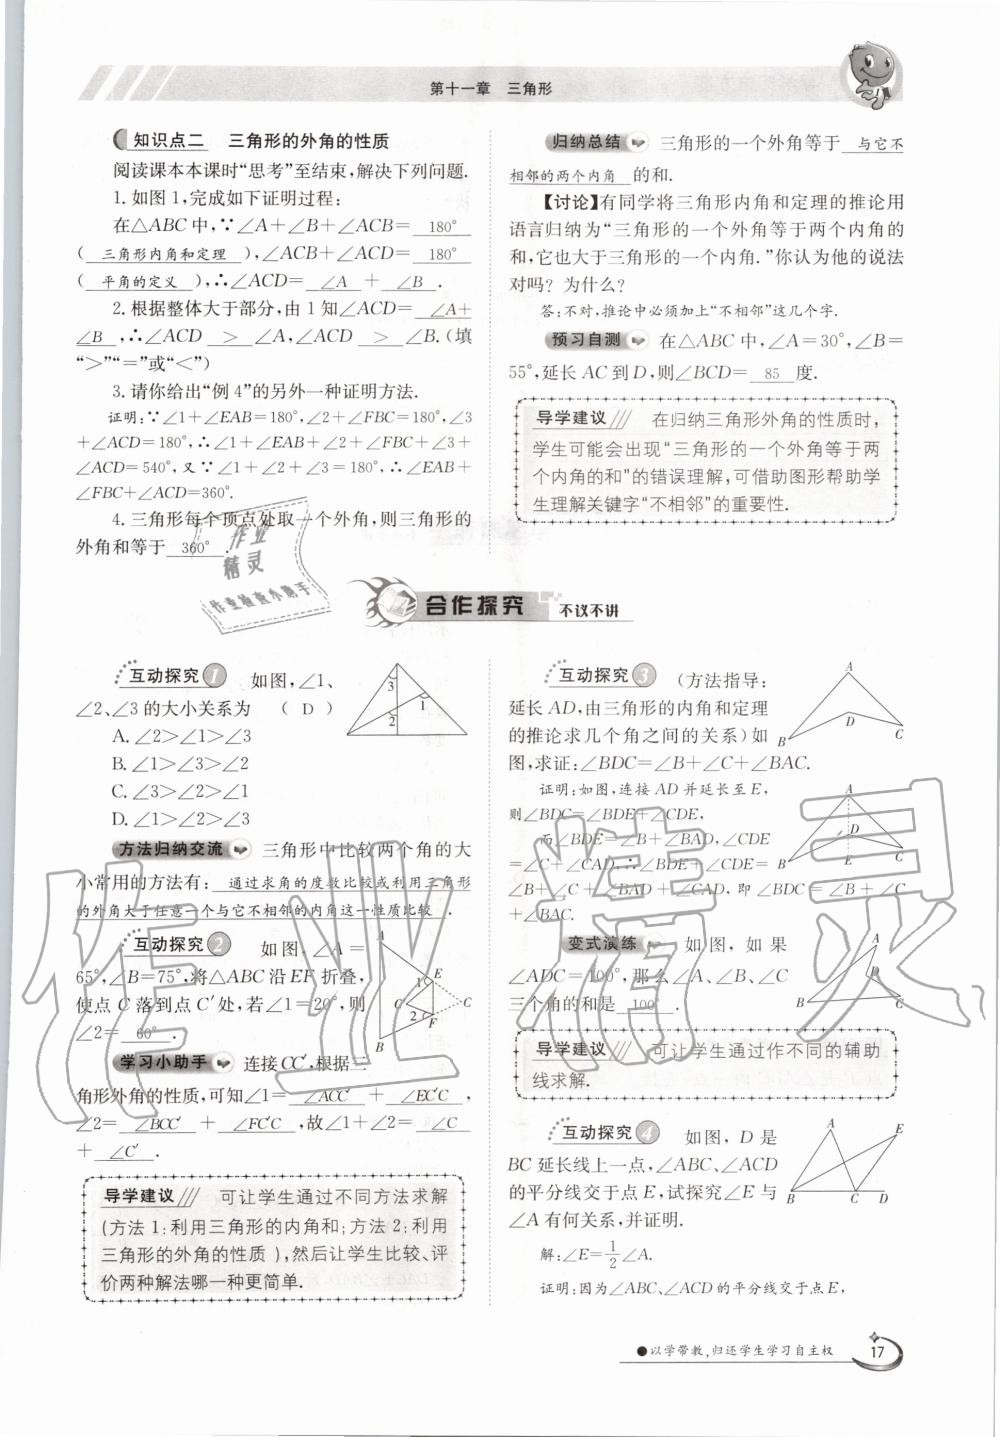 第十一章 三角形
知识点二 三角形的外角的性质
阅读课本本课时“思考”至结束,解决下列问题.
1.如图1,完成如下证明过程:
在△ABC中,∵∠A+∠B+∠ACB= 180°
( 三角形内角和定理 ),∠ACB+∠ACD= 180°
( 平角的定义 ),∴∠ACD= ∠A + ∠B .
2.根据整体大于部分,由1知∠ACD= ∠A+
∠B ,∴∠ACD > ∠A,∠ACD > ∠B.(填
“>”“=”或“<”)
3.请你给出“例4”的另外一种证明方法.
证明:∵∠1+∠EAB=180°,∠2+∠FBC=180°,∠3
+∠ACD=180°,∴∠1+∠EAB+∠2+∠FBC+∠3+
∠ACD=540°,又∵∠1+∠2+∠3=180°,∴∠EAB+
∠FBC+∠ACD=360°.
4.三角形每个顶点处取一个外角,则三角形的
外角和等于 360° .
归纳总结 三角形的一个外角等于 与它不
相邻的两个内角 的和.
【讨论】有同学将三角形内角和定理的推论用
语言归纳为“三角形的一个外角等于两个内角的
和,它也大于三角形的一个内角.”你认为他的说法
对吗?为什么?
答:不对,推论中必须加上“不相邻”这几个字.
预习自测 在△ABC中,∠A=30°,∠B=
55°,延长AC到D,则∠BCD= 85 度.
导学建议 在归纳三角形外角的性质时,
学生可能会出现“三角形的一个外角等于两
个内角的和”的错误理解,可借助图形帮助学
生理解关键字“不相邻”的重要性.
作业
精灵
作业检查小助手
合作探究 不议不讲
互动探究1 如图,∠1、
∠2、∠3的大小关系为 ( D )
A.∠2>∠1>∠3
B.∠1>∠3>∠2
C.∠3>∠2>∠1
D.∠1>∠2>∠3
3
1
2
方法归纳交流 三角形中比较两个角的大
小常用的方法有: 通过求角的度数比较或利用三角形
的外角大于任意一个与它不相邻的内角这一性质比较 .
互动探究2 如图,∠A=
65°,∠B=75°,将△ABC沿EF折叠,
使点C落到点C′处,若∠1=20°,则
∠2= 60° .
A
E
1
C′
C
2
F
B
学习小助手 连接CC′,根据三
角形外角的性质,可知∠1= ∠ACC′ + ∠EC′C ,
∠2= ∠BCC′ + ∠FC′C ,故∠1+∠2= ∠C
+ ∠C′ .
导学建议 可让学生通过不同方法求解
(方法1:利用三角形的内角和;方法2:利用
三角形的外角的性质),然后让学生比较、评
价两种解法哪一种更简单.
互动探究3 (方法指导:
延长AD,由三角形的内角和定理
的推论求几个角之间的关系)如
图,求证:∠BDC=∠B+∠C+∠BAC.
A
D
B
C
证明:如图,连接AD并延长至E,
则∠BDC=∠BDE+∠CDE,
而∠BDE=∠B+∠BAD,∠CDE
=∠C+∠CAD,∴∠BDE+∠CDE=
∠B+∠C+∠BAD+∠CAD,即∠BDC=∠B+∠C
+∠BAC.
A
D
B
E
C
变式演练 如图,如果
∠ADC=100°,那么∠A、∠B、∠C
三个角的和是 100° .
A
D
B
C
导学建议 可让学生通过作不同的辅助
线求解.
互动探究4 如图,D是
BC延长线上一点,∠ABC、∠ACD
的平分线交于点E,试探究∠E与
∠A有何关系,并证明.
A
E
B
C
D
解:∠E=1/2∠A.
证明:因为∠ABC、∠ACD的平分线交于点E,
作业精灵
●以学带教,归还学生学习自主权
17